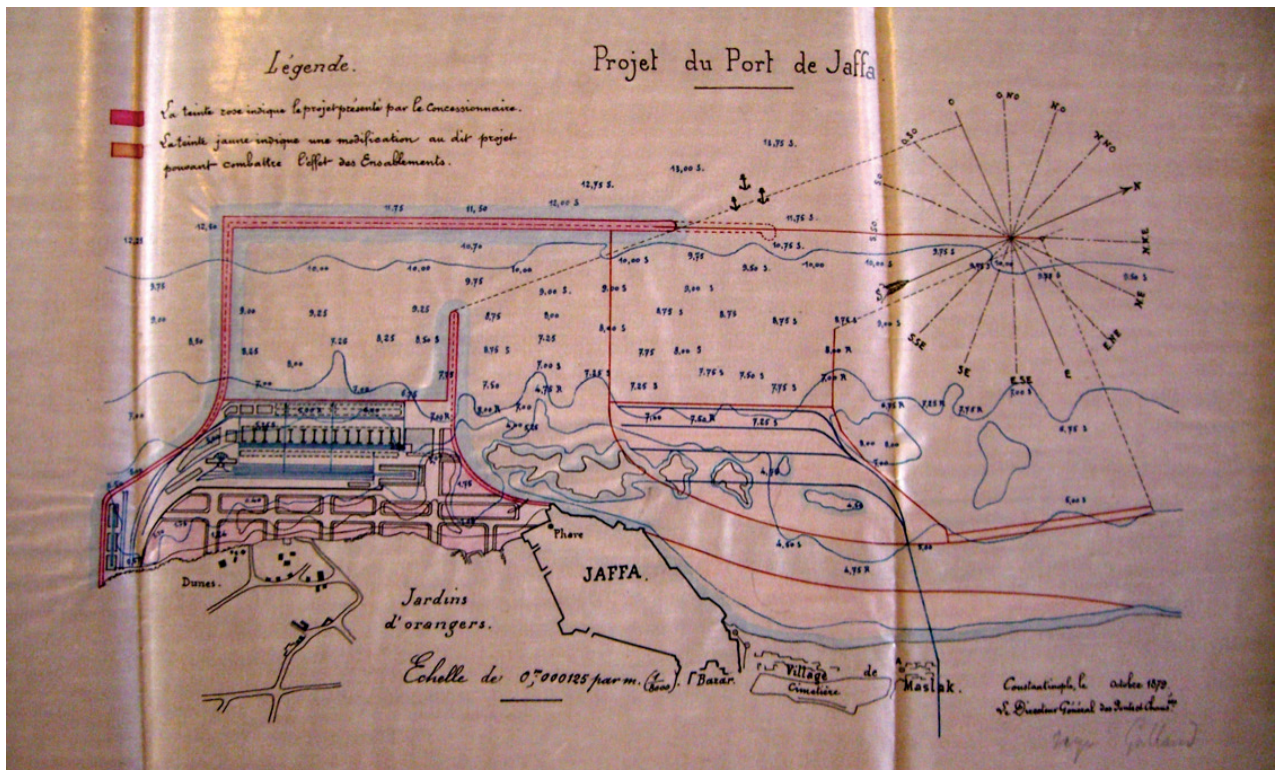 Légende.
Projet du Port de Jaffa
La teinte rose indique le projet présenté par le Concessionnaire.
La teinte jaune indique une modification au dit projet
pouvant combattre l'effet des Ensablements.
O
O.NO
N.O
N.NO
N
N.NE
NE
E.NE
E
E.SE
SE
S.SE
S.O
O.SO
14,75 S.
13,00 S.
12,75 S.
12,00 S
11,75
11,50
12,50
12,25
11,75 S.
10,75 S.
10,70
10,00
10,00
10,00
10,00 S
9,75
9,50 S.
10,00
10,00 S
9,75 S
9,50 S
9,75
9,00
9,25
9,25
9,75
9,00 S.
9,00 S
9,00 S
8,50
8,25
8,00
7,25
8,25
8,50 S
8,75
9,00
7,25
8,75 S
8,75
8,75 S
9,00 S
8,75 S
7,00 S
7,75
8,00 S
8,00 R
7,00
7,00
7,50
4,75 R
7,25 S
7,25 S
7,75 S
7,50 S
7,75 S
7,00 R
7,25 R
7,00 S
7,00
7,25 S
6,75 S
6,00 S
4,50 S
4,75 R
Phare
JAFFA.
Dunes.
Jardins
d'orangers.
Echelle de 0,m000125 par m. (1/8000).
Bazar.
Village de Maslak.
Cimetière
Constantinople, le Octobre 1879.
Le Directeur Général des Ponts et Chaus.ées
Galland